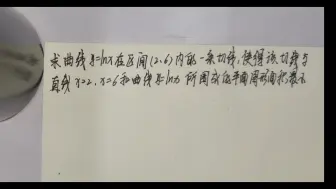 求曲线y=lnx在区间(2,6)内的一条切线,使得该切线与
直线x=2,x=6和曲线y=lnx所围成的平面图形面积最小